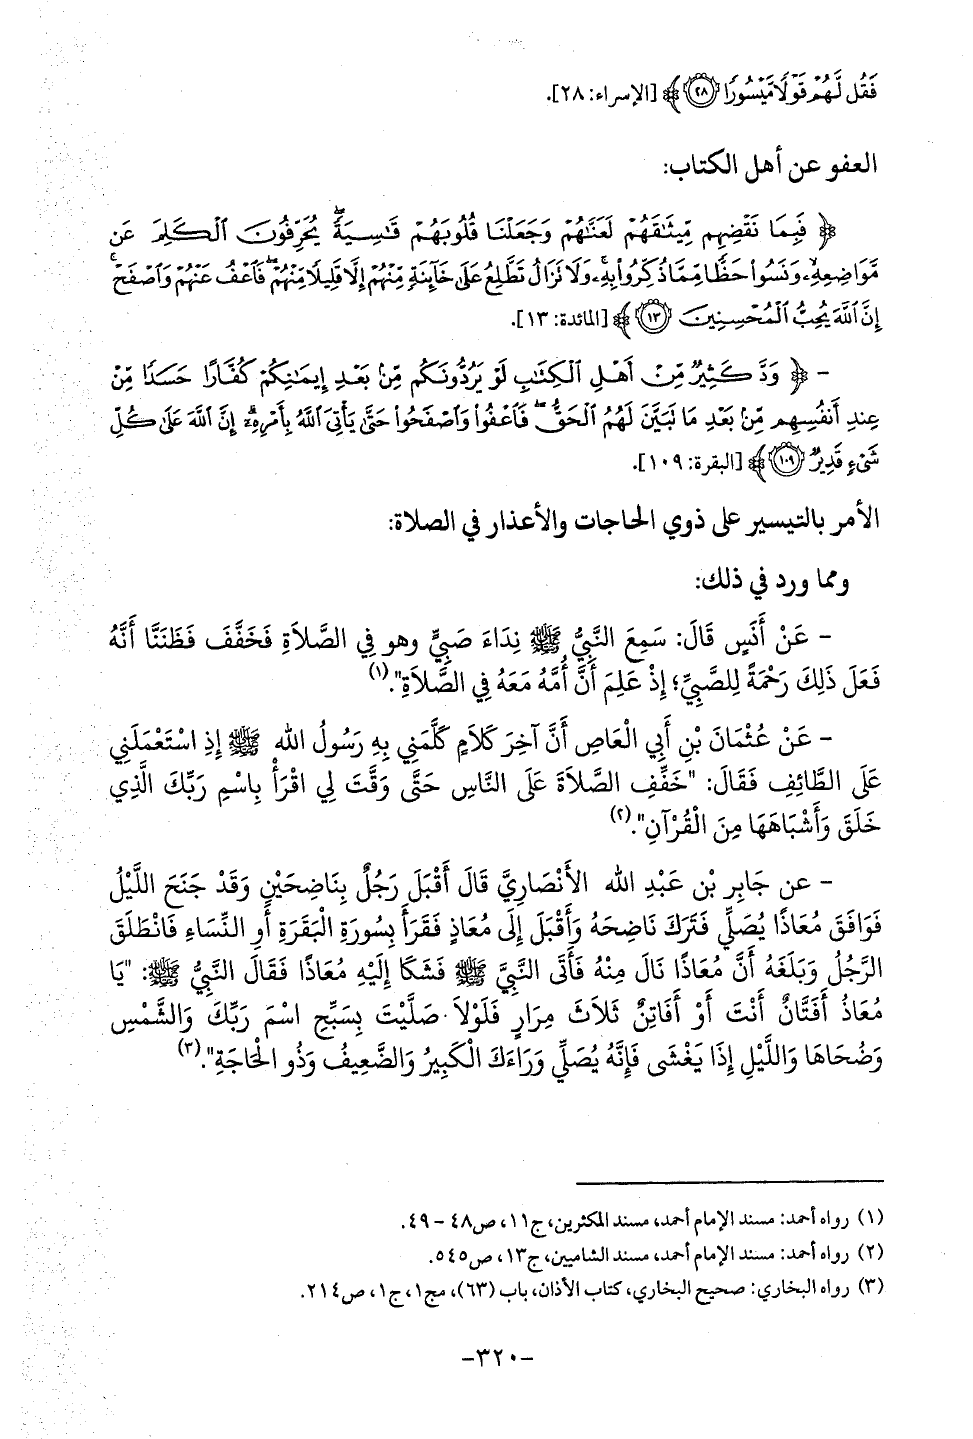 فَقُل لَّهُمْ قَوْلًا مَّيْسُورًا ﴿٢٨﴾ [الإسراء: ٢٨].
العفو عن أهل الكتاب:
﴿ فَبِمَا نَقْضِهِم مِّيثَٰقَهُمْ لَعَنَّٰهُمْ وَجَعَلْنَا قُلُوبَهُمْ قَٰسِيَةً ۖ يُحَرِّفُونَ ٱلْكَلِمَ عَن
مَّوَاضِعِهِۦ ۙ وَنَسُوا۟ حَظًّا مِّمَّا ذُكِّرُوا۟ بِهِۦ ۚ وَلَا تَزَالُ تَطَّلِعُ عَلَىٰ خَآئِنَةٍ مِّنْهُمْ إِلَّا قَلِيلًا مِّنْهُمْ ۖ فَٱعْفُ عَنْهُمْ وَٱصْفَحْ ۚ
إِنَّ ٱللَّهَ يُحِبُّ ٱلْمُحْسِنِينَ ﴿١٣﴾ [المائدة: ١٣].
– ﴿ وَدَّ كَثِيرٌ مِّنْ أَهْلِ ٱلْكِتَٰبِ لَوْ يَرُدُّونَكُم مِّنۢ بَعْدِ إِيمَٰنِكُمْ كُفَّارًا حَسَدًا مِّنْ
عِندِ أَنفُسِهِم مِّنۢ بَعْدِ مَا تَبَيَّنَ لَهُمُ ٱلْحَقُّ ۖ فَٱعْفُوا۟ وَٱصْفَحُوا۟ حَتَّىٰ يَأْتِىَ ٱللَّهُ بِأَمْرِهِۦٓ ۗ إِنَّ ٱللَّهَ عَلَىٰ كُلِّ
شَىْءٍ قَدِيرٌ ﴿١٠٩﴾ [البقرة: ١٠٩].
الأمر بالتيسير على ذوي الحاجات والأعذار في الصلاة:
ومما ورد في ذلك:
– عَنْ أَنَسٍ قَالَ: سَمِعَ النَّبِيُّ ﷺ نِدَاءَ صَبِيٍّ وهو فِي الصَّلاَةِ فَخَفَّفَ فَظَنَنَّا أَنَّهُ
فَعَلَ ذَلِكَ رَحْمَةً لِلصَّبِيِّ؛ إِذْ عَلِمَ أَنَّ أُمَّهُ مَعَهُ فِي الصَّلاَةِ".(١)
– عَنْ عُثْمَانَ بْنِ أَبِي الْعَاصِ أَنَّ آخِرَ كَلاَمٍ كَلَّمَنِي بِهِ رَسُولُ الله ﷺ إِذِ اسْتَعْمَلَنِي
عَلَى الطَّائِفِ فَقَالَ: "خَفِّفِ الصَّلاَةَ عَلَى النَّاسِ حَتَّى وَقَّتَ لِي اقْرَأْ بِاسْمِ رَبِّكَ الَّذِي
خَلَقَ وَأَشْبَاهَهَا مِنَ الْقُرْآنِ".(٢)
– عن جَابِر بْن عَبْدِ الله الأَنْصَارِيَّ قَالَ أَقْبَلَ رَجُلٌ بِنَاضِحَيْنِ وَقَدْ جَنَحَ اللَّيْلُ
فَوَافَقَ مُعَاذًا يُصَلِّي فَتَرَكَ نَاضِحَهُ وَأَقْبَلَ إِلَى مُعَاذٍ فَقَرَأَ بِسُورَةِ الْبَقَرَةِ أَوِ النِّسَاءِ فَانْطَلَقَ
الرَّجُلُ وَبَلَغَهُ أَنَّ مُعَاذًا نَالَ مِنْهُ فَأَتَى النَّبِيَّ ﷺ فَشَكَا إِلَيْهِ مُعَاذًا فَقَالَ النَّبِيُّ ﷺ: "يَا
مُعَاذُ أَفَتَّانٌ أَنْتَ أَوْ أَفَاتِنٌ ثَلاَثَ مِرَارٍ فَلَوْلاَ صَلَّيْتَ بِسَبِّحِ اسْمَ رَبِّكَ وَالشَّمْسِ
وَضُحَاهَا وَاللَّيْلِ إِذَا يَغْشَى فَإِنَّهُ يُصَلِّي وَرَاءَكَ الْكَبِيرُ وَالضَّعِيفُ وَذُو الْحَاجَةِ".(٣)
(١) رواه أحمد: مسند الإمام أحمد، مسند المكثرين، ج١١، ص٤٨ – ٤٩.
(٢) رواه أحمد: مسند الإمام أحمد، مسند الشاميين، ج١٣، ص٥٤٥.
(٣) رواه البخاري: صحيح البخاري، كتاب الأذان، باب (٦٣)، مج١، ج١، ص٢١٤.
–٣٢٠–